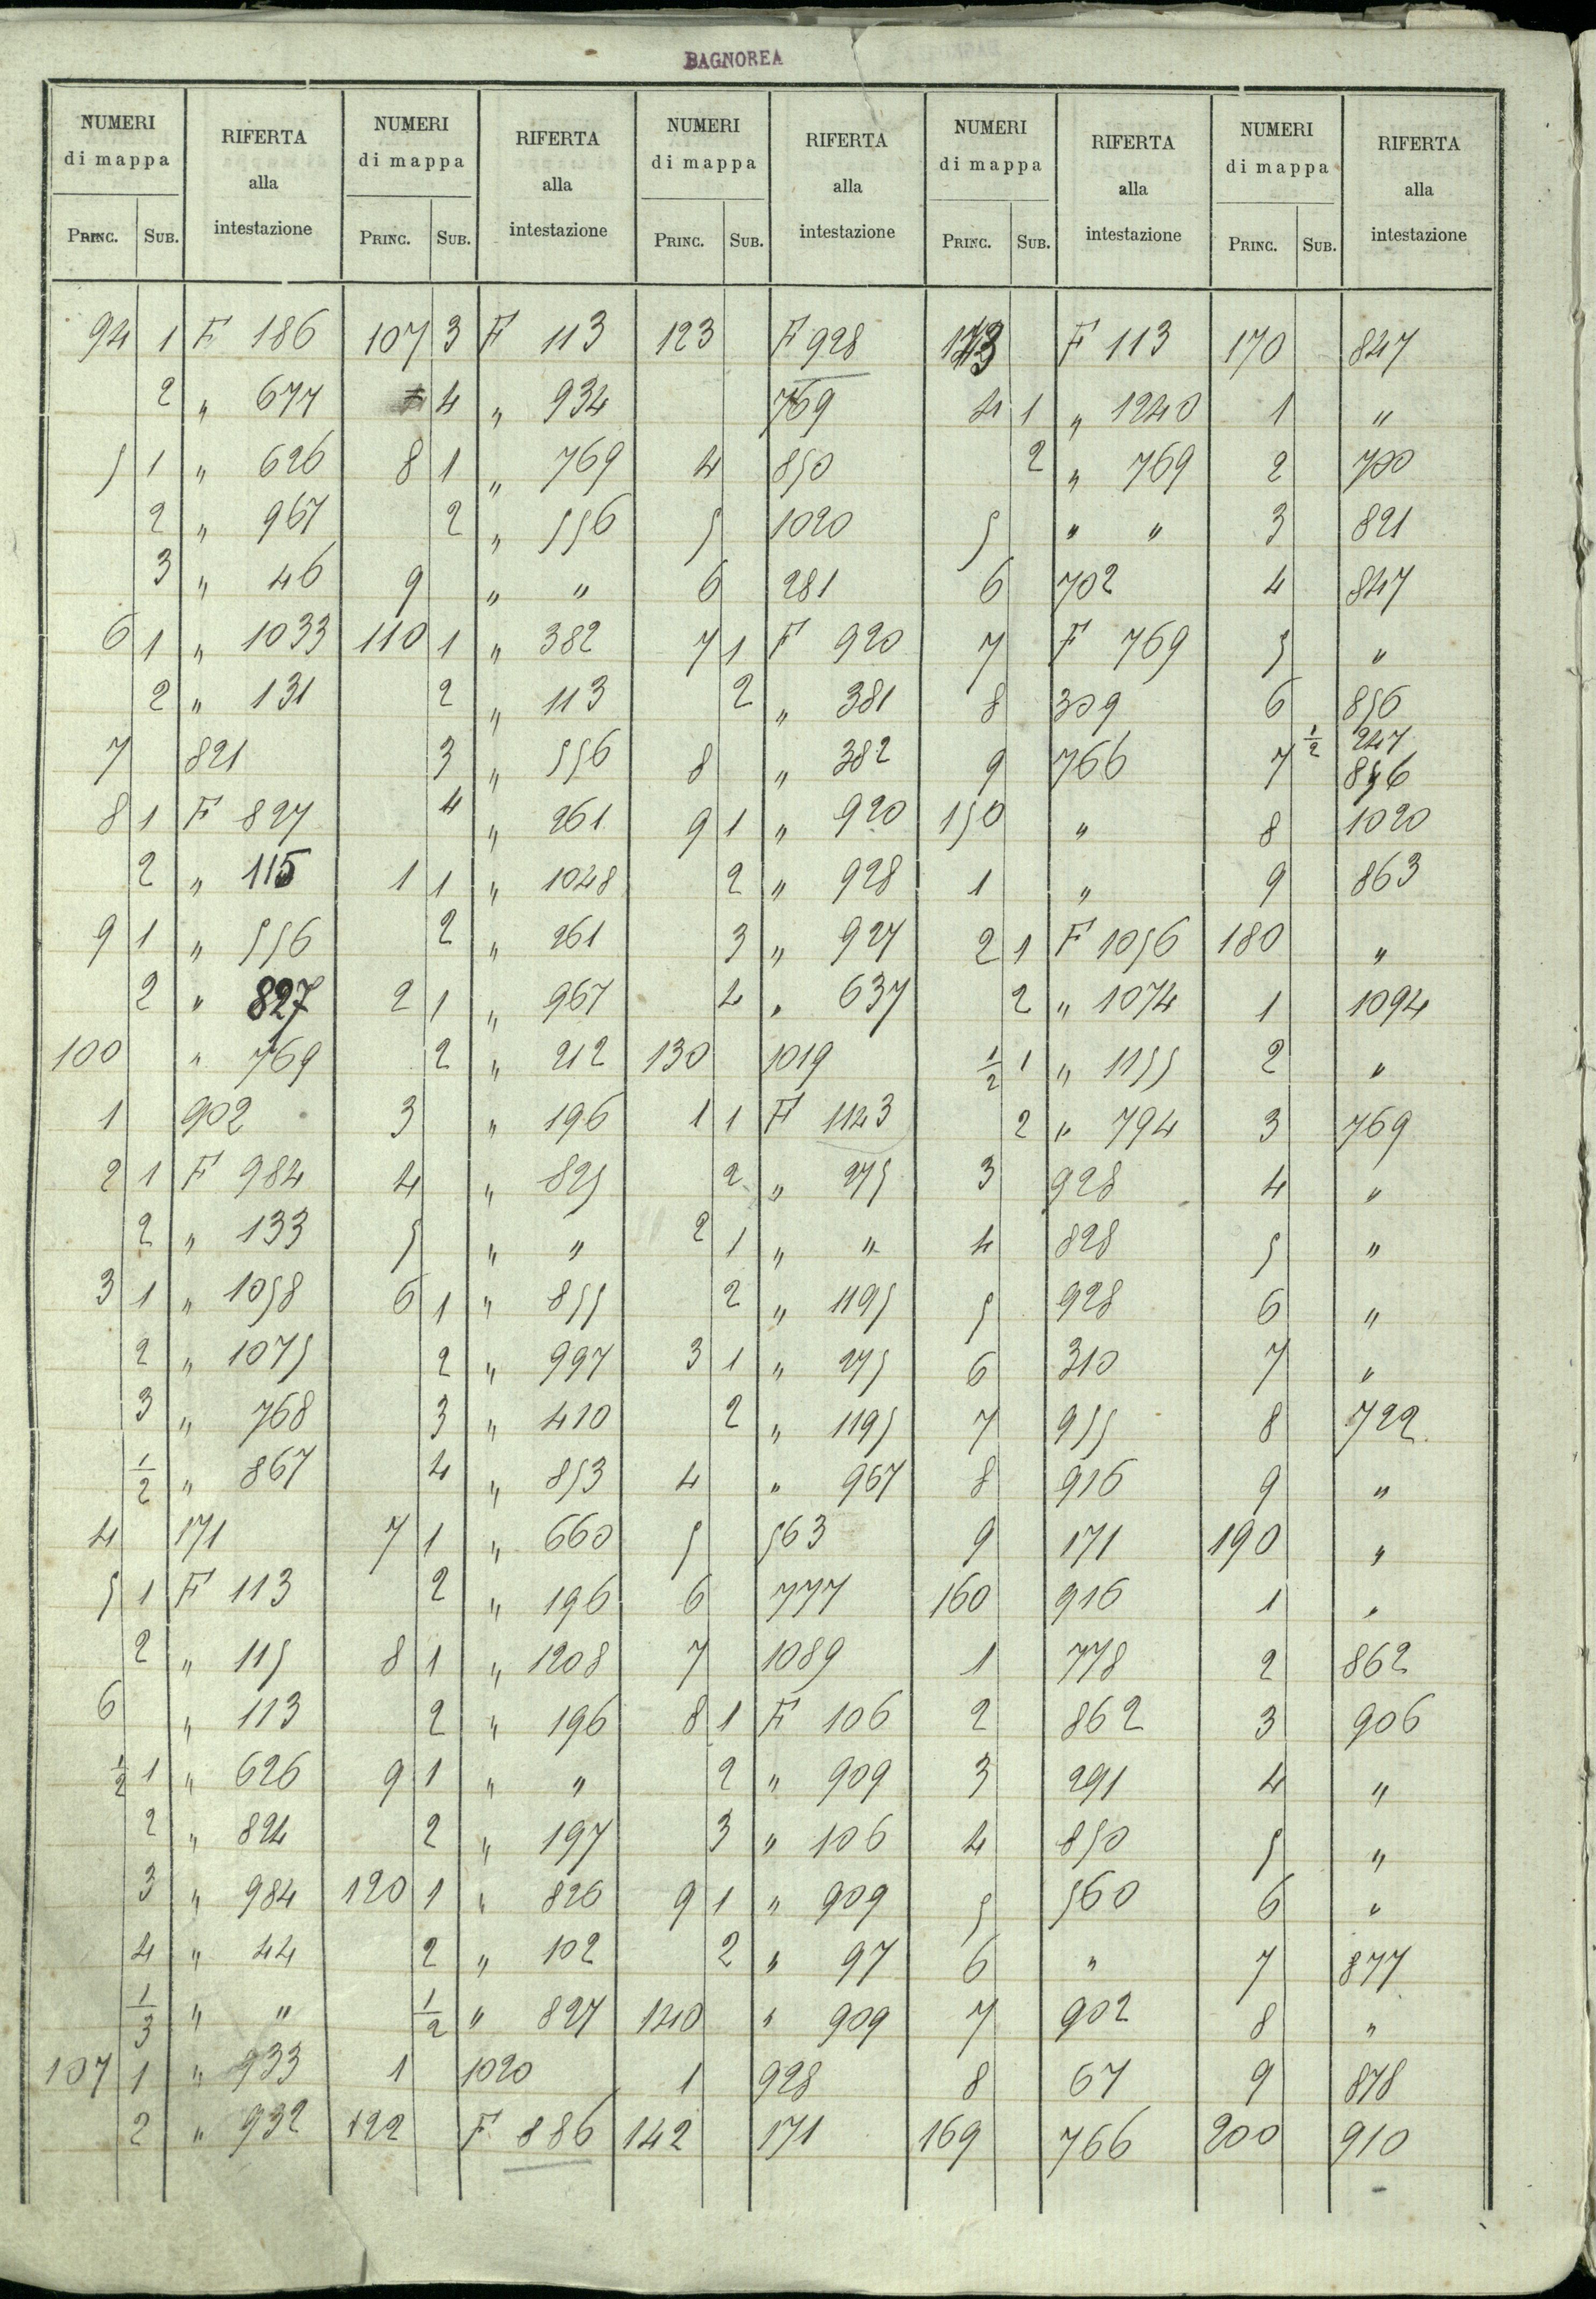 BAGNOREA
NUMERI di mappa RIFERTA alla intestazione NUMERI di mappa RIFERTA alla intestazione NUMERI di mappa RIFERTA alla intestazione NUMERI di mappa RIFERTA alla intestazione NUMERI di mappa RIFERTA alla intestazione
PRINC. SUB. PRINC. SUB. PRINC. SUB. PRINC. SUB. PRINC. SUB.
94 1 F 186 107 3 F 113 123 F 928 143 F 113 170 847
2 " 677 4 " 934 769 4 1 " 1240 1 "
5 1 " 626 8 1 " 769 4 850 2 " 769 2 700
2 " 967 2 " 556 5 1020 5 " " 3 821
3 " 46 9 " " 6 281 6 702 4 847
6 1 " 1033 110 1 " 382 7 1 F 920 7 F 769 5 "
2 " 131 2 " 113 2 " 381 8 309 6 856
7 821 3 " 556 8 " 382 9 766 7 1/2 247 856
8 1 F 827 4 " 261 9 1 " 920 150 " 8 1020
2 " 115 1 1 " 1048 2 " 928 1 " 9 863
9 1 " 556 2 " 261 3 " 927 2 1 F 1056 180 "
2 " 827 2 1 " 967 4 " 637 2 " 1074 1 1094
100 " 769 2 " 212 130 1019 1/2 1 " 1155 2 "
1 902 3 " 196 1 1 F 1143 2 " 794 3 769
2 1 F 984 4 " 825 2 " 275 3 928 4 "
2 " 133 5 " " 2 1 " " 4 828 5 "
3 1 " 1058 6 1 " 855 2 " 1195 5 928 6 "
2 " 1075 2 " 997 3 1 " 275 6 310 7 "
3 " 768 3 " 410 2 " 1195 7 955 8 722
1/2 " 867 4 " 853 4 " 967 8 916 9 "
4 171 7 1 " 660 5 563 9 171 190 "
5 1 F 113 2 " 196 6 777 160 916 1 "
2 " 115 8 1 " 1208 7 1089 1 778 2 862
6 " 113 2 " 196 8 1 F 106 2 862 3 906
1/2 1 " 626 9 1 " " 2 " 909 3 291 4 "
2 " 824 2 " 197 3 " 106 4 850 5 "
3 " 984 120 1 " 826 9 1 " 909 5 560 6 "
4 " 44 2 " 102 2 " 97 6 " 7 877
1/3 " " 1/2 " 827 140 " 909 7 902 8 "
107 1 " 933 1 1020 1 928 8 67 9 878
2 " 932 122 F 886 142 171 169 766 200 910